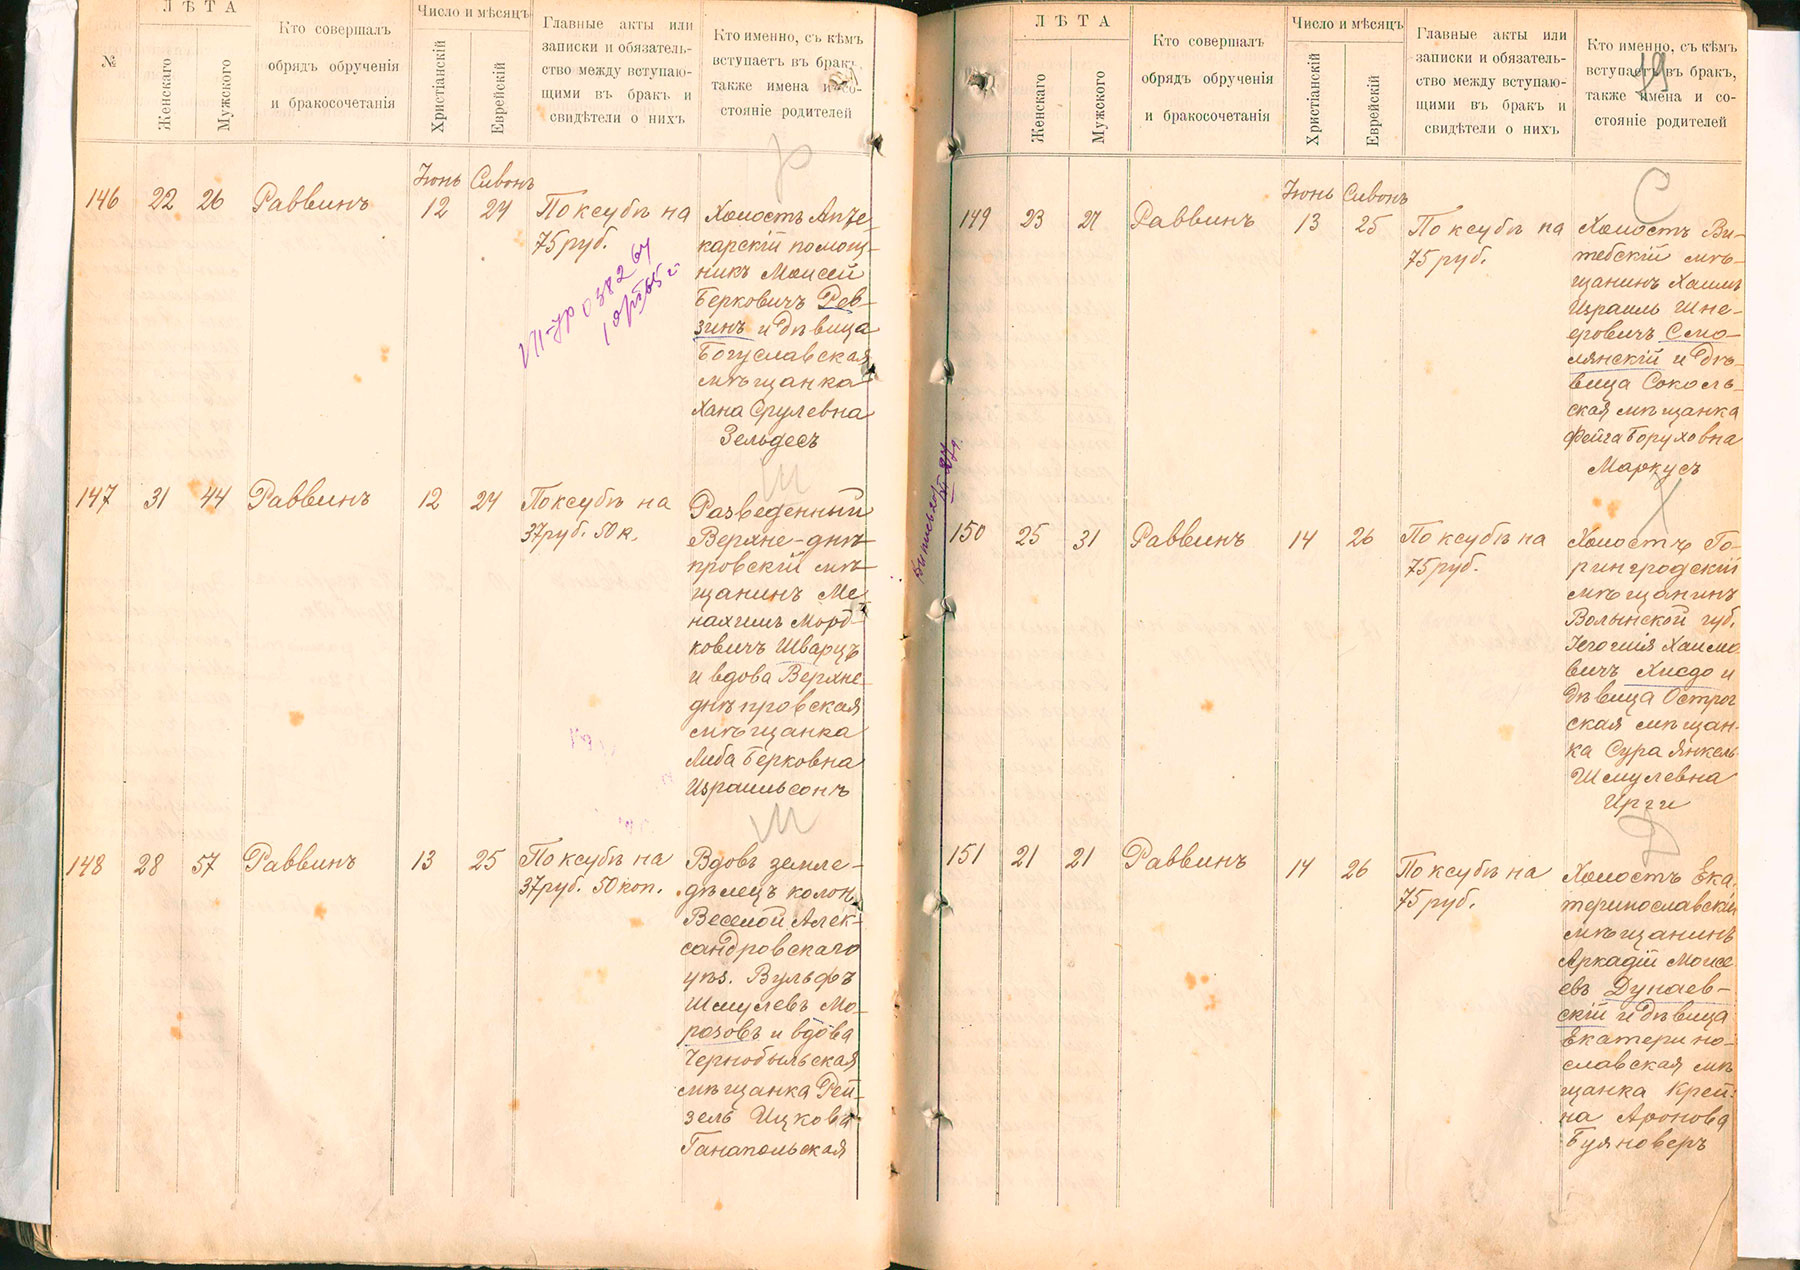 №
ЛѢТА
Женскаго
Мужского
Кто совершалъ
обрядъ обрученія
и бракосочетанія
Число и мѣсяцъ
Христіанскій
Еврейскій
Главные акты или
записки и обязатель-
ство между вступаю-
щими въ бракъ и
свидѣтели о нихъ
Кто именно, съ кѣмъ
вступаетъ въ бракъ,
также имена и со-
стояніе родителей
Р
146
22
26
Раввинъ
Іюнь
12
Сивонъ
24
По ксубѣ на
75 руб.
Холостъ Апте-
карскій помощ-
никъ Моисей
Берковичъ Рев-
зинъ и дѣвица
Богуславская
мѣщанка
Хана Срулевна
Зельдесъ
Ш
147
31
44
Раввинъ
12
24
По ксубѣ на
37 руб. 50 к.
Разведенный
Верхне-днѣ-
провскій мѣ-
щанинъ Ме
нахимъ Морд-
ковичъ Шварцъ
и вдова Верхне-
днѣпровская
мѣщанка
Либа Берковна
Израильсонъ
148
28
57
Раввинъ
13
25
По ксубѣ на
37 руб. 50 коп.
Вдовъ земле-
дѣлецъ колон.
Веселой Алек-
сандровскаго
уѣз. Вульфъ
Шмулевъ Мо-
розовъ и вдова
Чернобыльская
мѣщанка Рей-
зель Ицкова
Ганапольская
ЛѢТА
Женскаго
Мужского
Кто совершалъ
обрядъ обрученія
и бракосочетанія
Число и мѣсяцъ
Христіанскій
Еврейскій
Главные акты или
записки и обязатель-
ство между вступаю-
щими въ бракъ и
свидѣтели о нихъ
Кто именно, съ кѣмъ
вступаетъ въ бракъ,
также имена и со-
стояніе родителей
С
149
23
27
Раввинъ
Іюнь
13
Сивонъ
25
По ксубѣ на
75 руб.
Холостъ Ви-
тебскій мѣ-
щанинъ Хаимъ
Израиль Шне-
еровичъ Смо-
лянскій и дѣ-
вица Соколь-
ская мѣщанка
Фейга Боруховна
Маркусъ
Х
150
25
31
Раввинъ
14
26
По ксубѣ на
75 руб.
Холостъ Го-
рингродскій
мѣщанинъ
Волынской губ.
Хаимо
вичъ и
дѣвица Острог
ская мѣщан-
ка Сура Янкель-
Шмулевна
Ирги
Д
151
21
21
Раввинъ
14
26
По ксубѣ на
75 руб.
Холостъ Ека
теринославскій
мѣщанинъ
Аркадій Моисе
евъ Дунаев-
скій и дѣвица
Екатерино-
славская мѣ
щанка Крей-
на Аронова
Буяноверъ